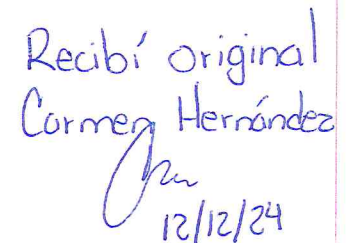 Recibí original
Carmen Hernández
12/12/24